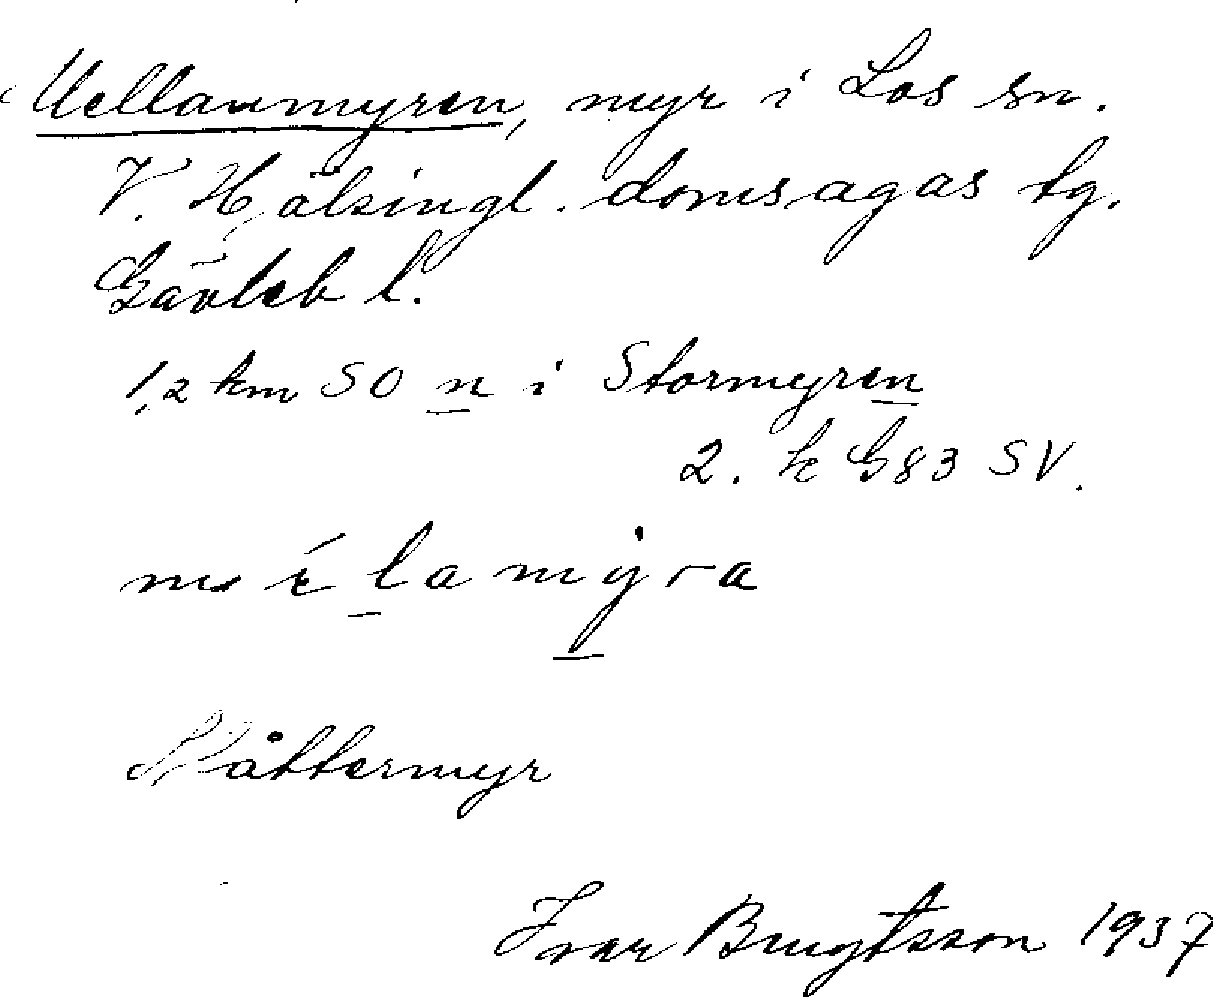 Mellanmyren, myr i Los sn.
V. Hälsingl. domsagas tg.
Gävleb l.
1,2 km SO n i Stormyren
2. k G83 SV.
la myra
Slåttermyr
Ivar Bengtsson 1937